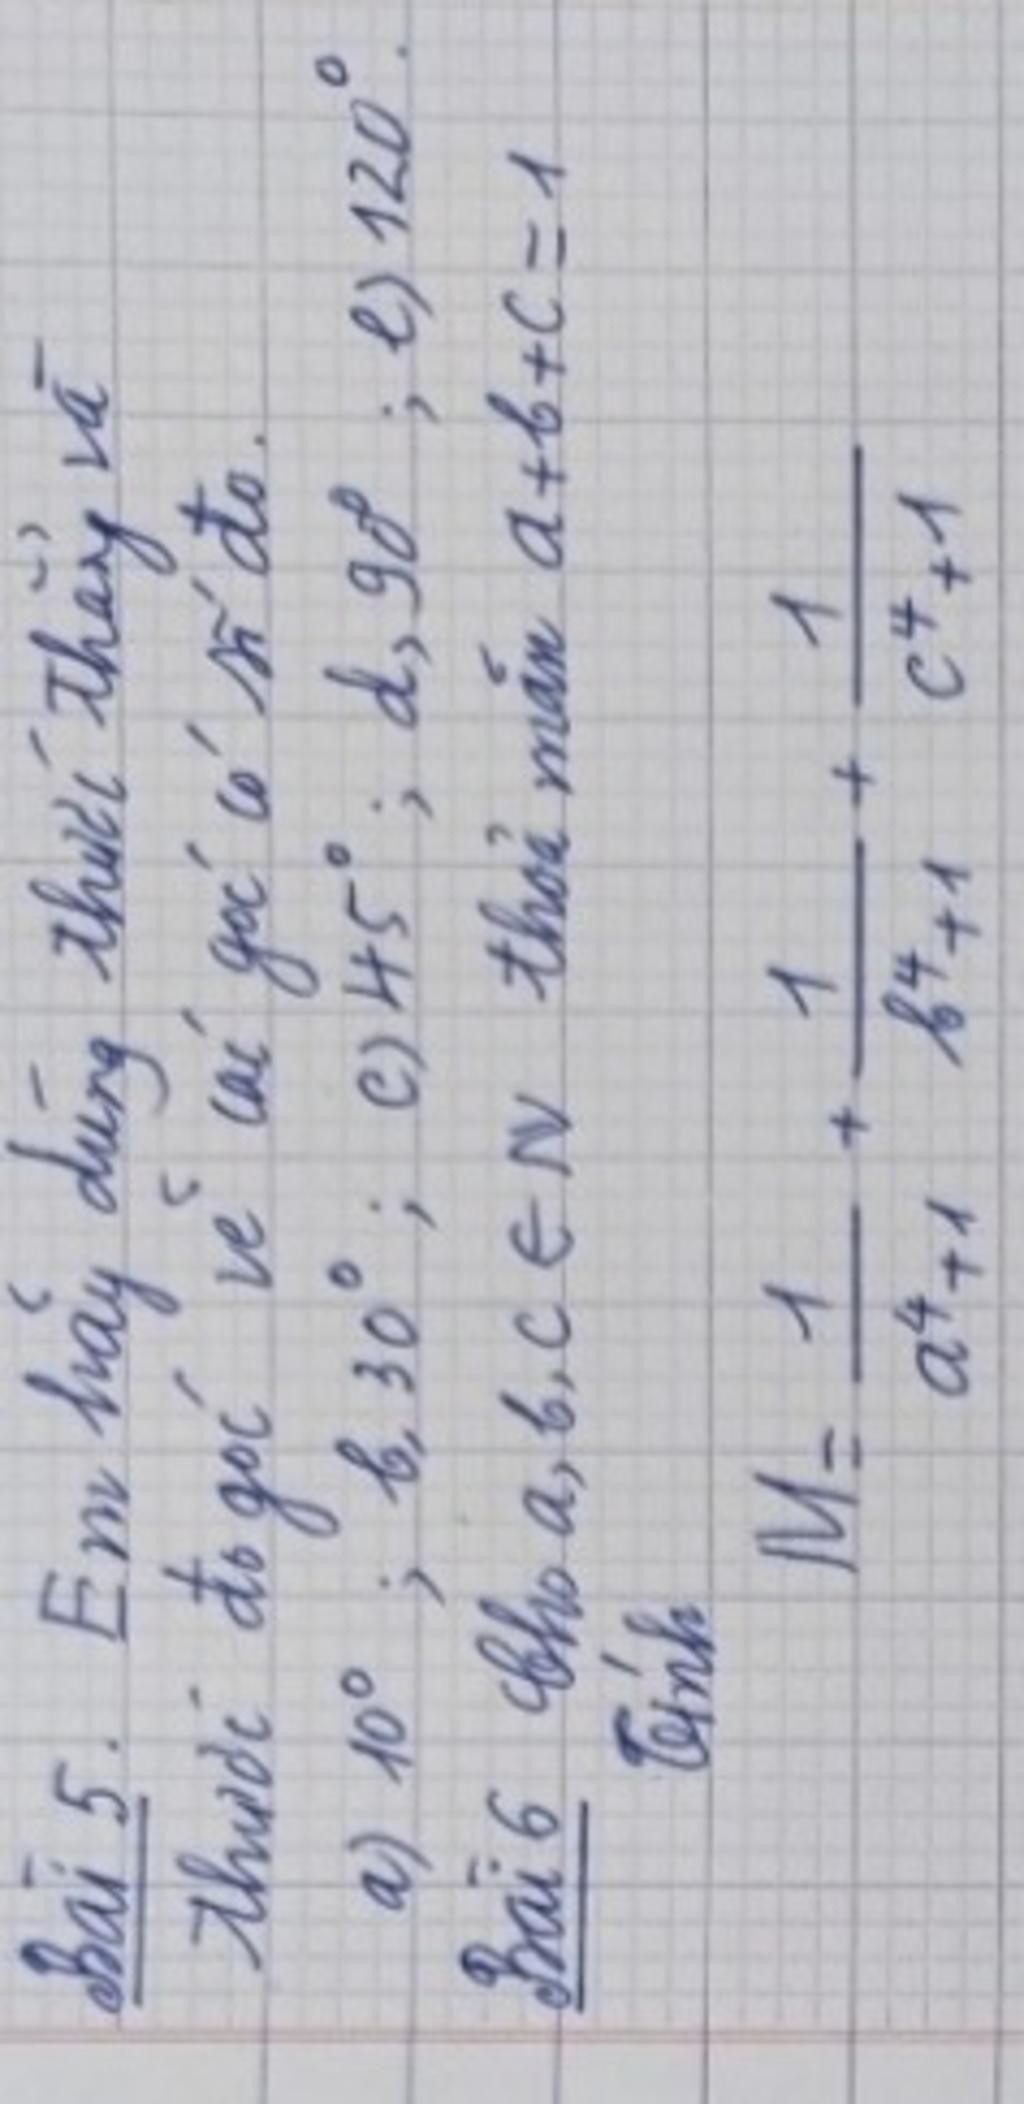 Bài 5. Em hãy dùng thước thẳng và
thước đo góc vẽ các góc có số đo.
a) 10° ; b, 30° ; c) 45° ; d, 90° ; e) 120°.
Bài 6 Cho a, b, c ∈ N thỏa mãn a+b+c=1
Tính
M = 1/(a⁴+1) + 1/(b⁴+1) + 1/(c⁴+1)